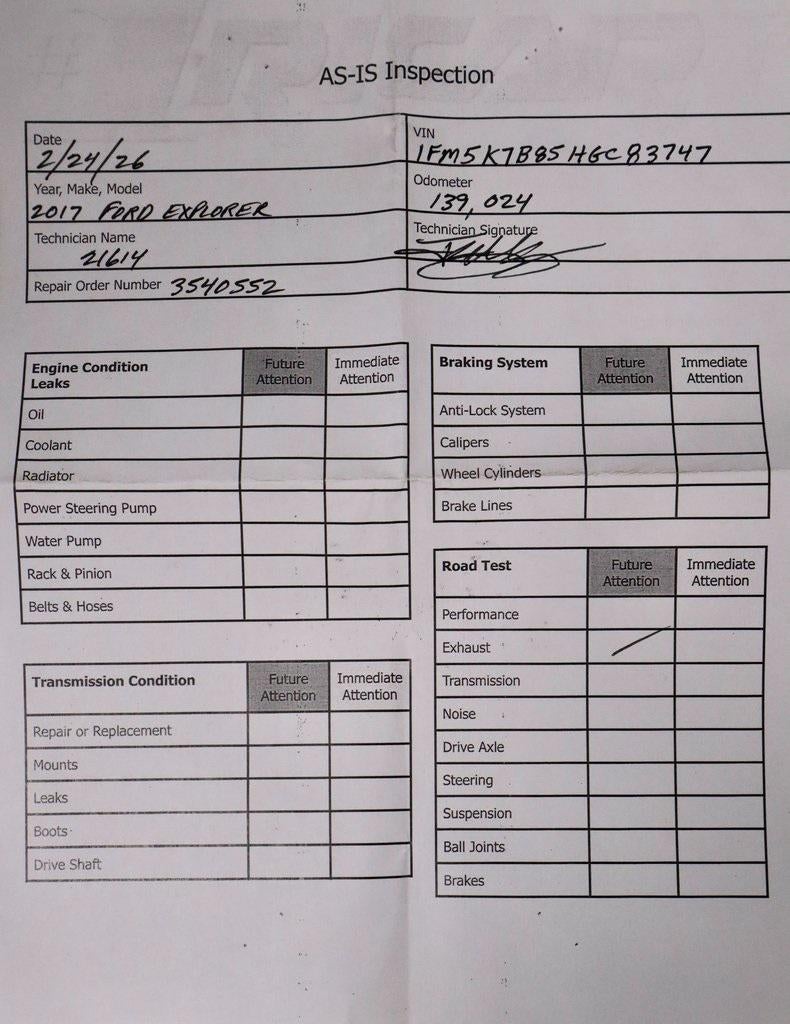 AS-IS Inspection
Date
2/24/26
VIN
1FM5K7B85HGC83747
Year, Make, Model
2017 FORD EXPLORER
Odometer
139,024
Technician Name
21614
Technician Signature
Repair Order Number 3540552
Engine Condition
Leaks
Future
Attention
Immediate
Attention
Oil
Coolant
Radiator
Power Steering Pump
Water Pump
Rack & Pinion
Belts & Hoses
Braking System
Future
Attention
Immediate
Attention
Anti-Lock System
Calipers
Wheel Cylinders
Brake Lines
Transmission Condition
Future
Attention
Immediate
Attention
Repair or Replacement
Mounts
Leaks
Boots
Drive Shaft
Road Test
Future
Attention
Immediate
Attention
Performance
Exhaust
Transmission
Noise
Drive Axle
Steering
Suspension
Ball Joints
Brakes